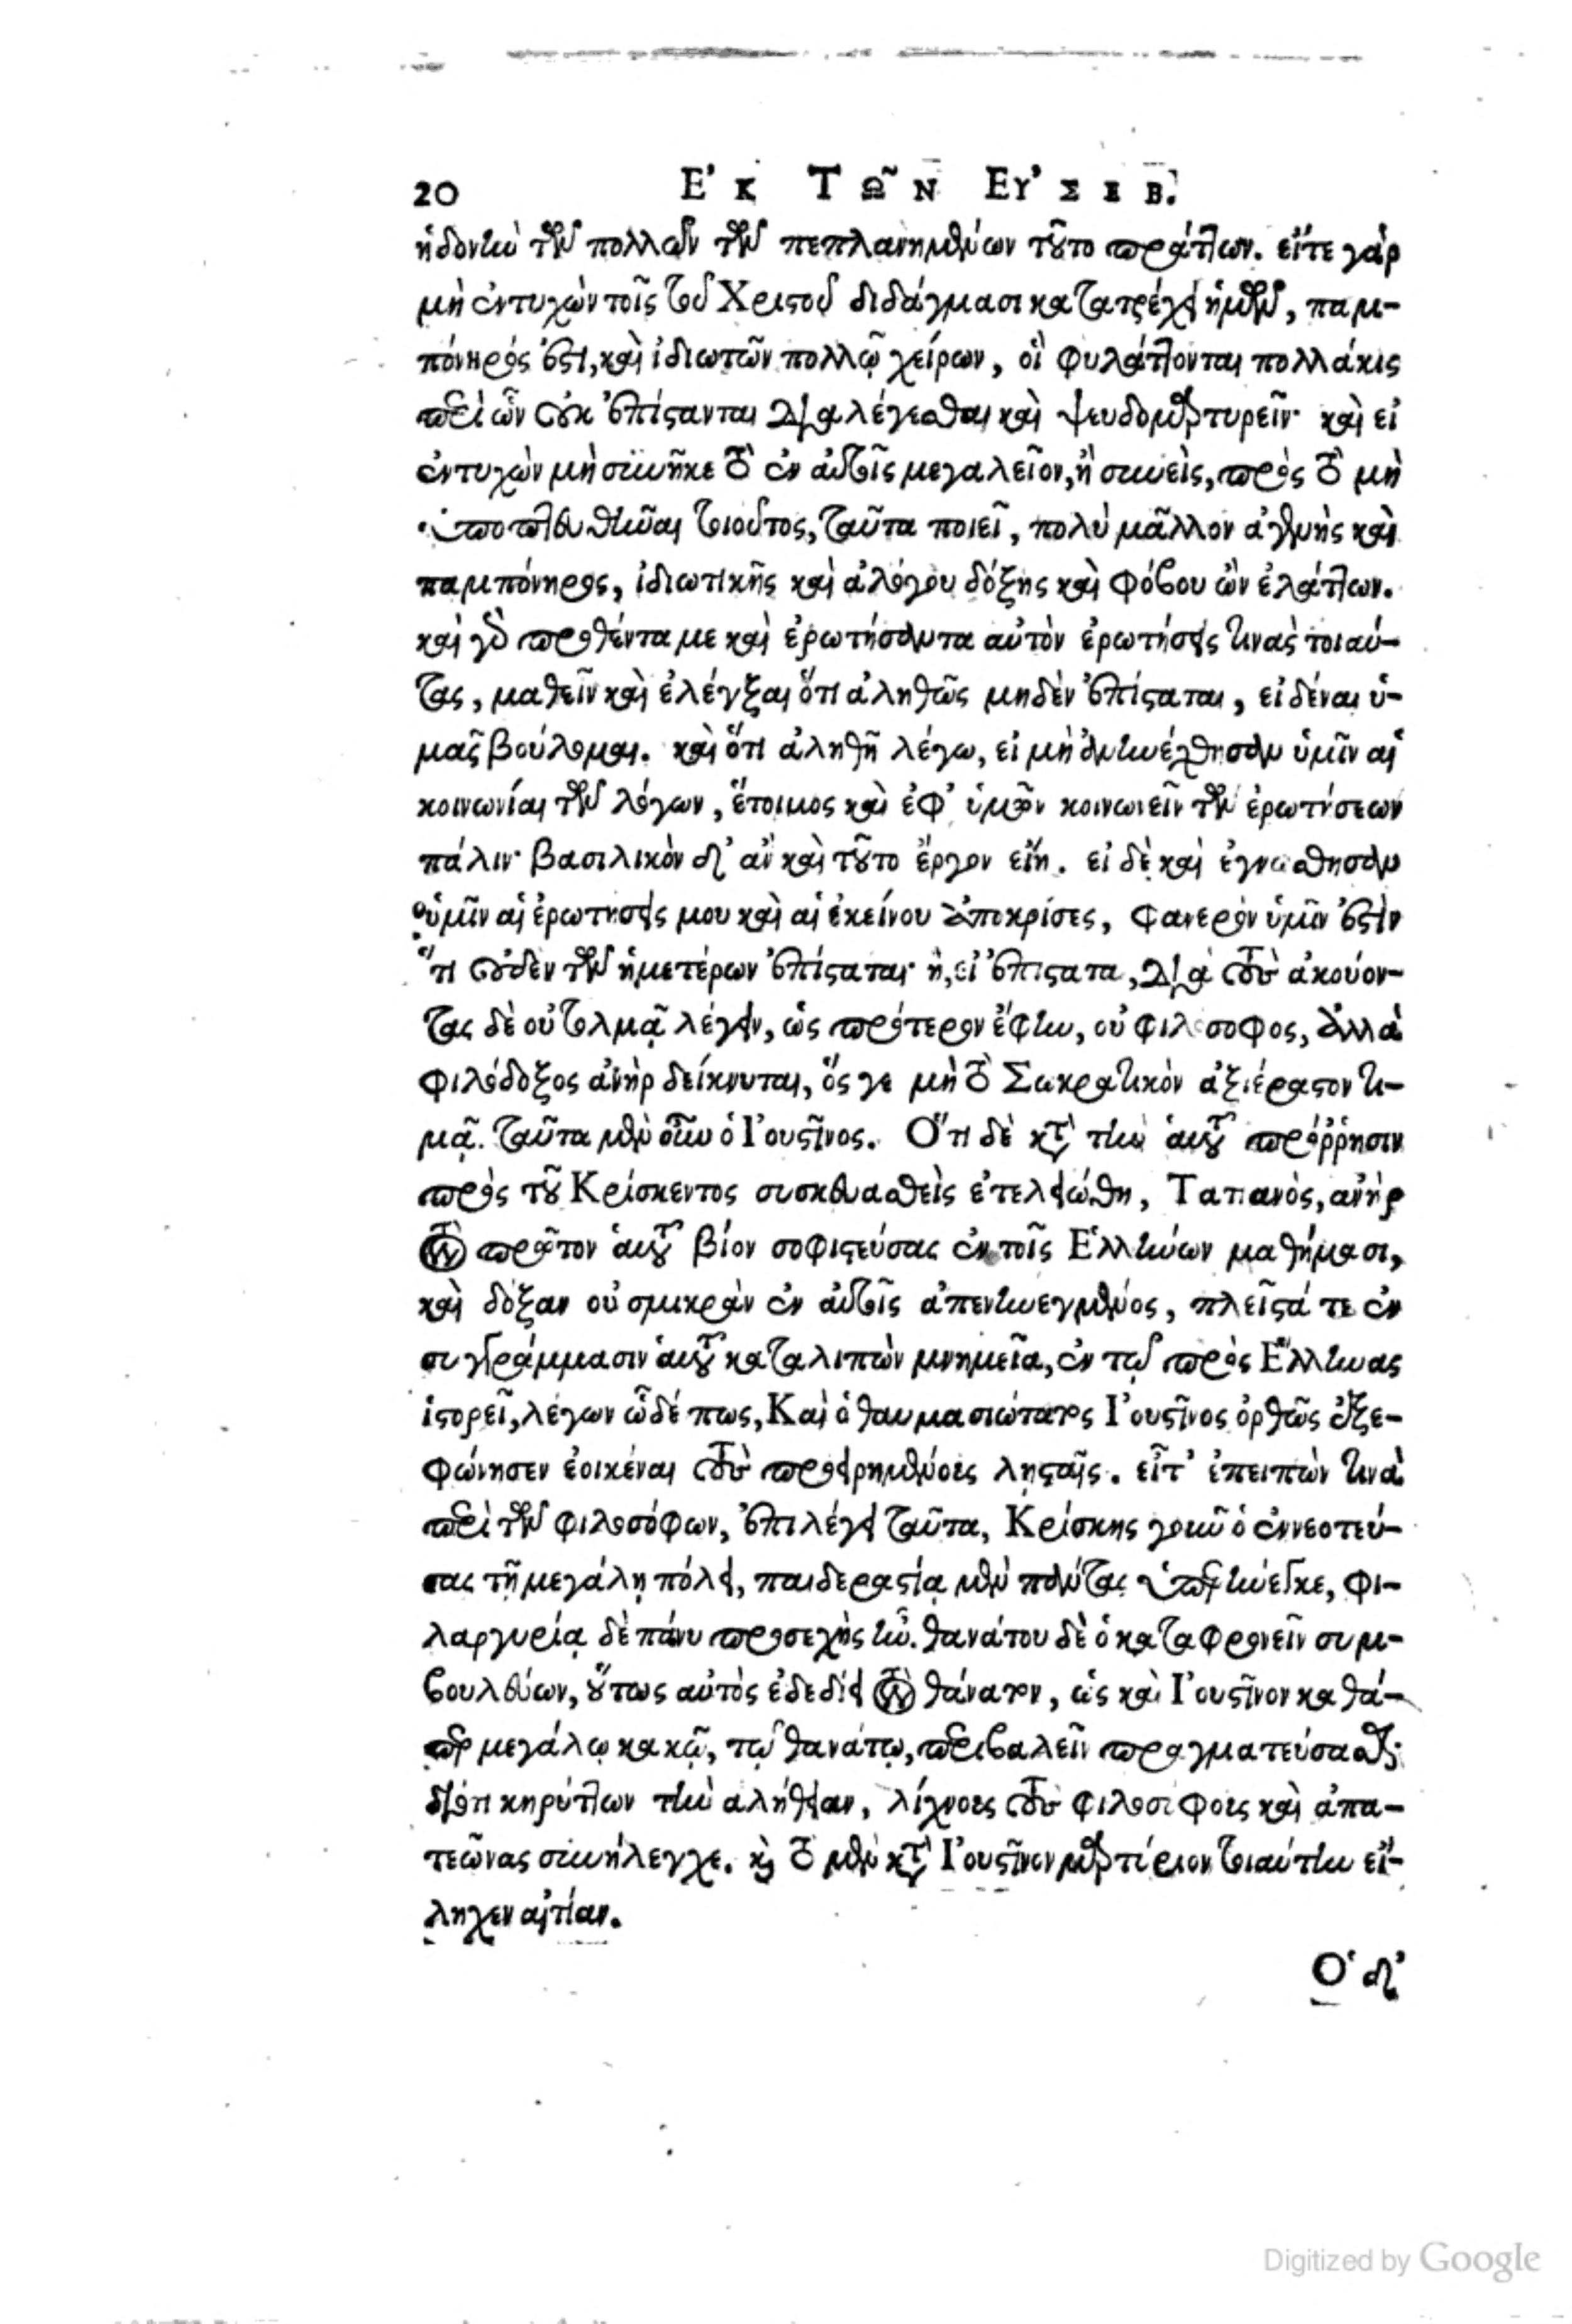 20 Ἐκ τῶν Εὐσεβ.
ἡδονὴν τῶν πολλῶν τῶν πεπλανημένων τοῦτο πράττων. εἴτε γὰρ
μὴ ἐντυχὼν τοῖς τοῦ Χριστοῦ διδάγμασι κατατρέχει ἡμῶν, παμ-
πόνηρός ἐστι, καὶ ἰδιωτῶν πολλῷ χείρων, οἳ φυλάττονται πολλάκις
περὶ ὧν οὐκ ἐπίστανται διαλέγεσθαι καὶ ψευδομαρτυρεῖν· καὶ εἰ
ἐντυχὼν μὴ συνῆκε τὸ ἐν αὐτοῖς μεγαλεῖον, ἢ συνεὶς, πρὸς τὸ μὴ
ὑποπτευθῆναι τοιοῦτος, ταῦτα ποιεῖ, πολὺ μᾶλλον ἀγενὴς καὶ
παμπόνηρος, ἰδιωτικῆς καὶ ἀλόγου δόξης καὶ φόβου ὢν ἐλάττων.
καὶ γὰρ προθέντα με καὶ ἐρωτήσαντα αὐτὸν ἐρωτήσεις τινὰς τοιαύ-
τας, μαθεῖν καὶ ἐλέγξαι ὅτι ἀληθῶς μηδὲν ἐπίσταται, εἰδέναι ὑ-
μᾶς βούλομαι. καὶ ὅτι ἀληθῆ λέγω, εἰ μὴ ἀνηνέχθησαν ὑμῖν αἱ
κοινωνίαι τῶν λόγων, ἕτοιμος καὶ ἐφ' ὑμῶν κοινωνεῖν τῶν ἐρωτήσεων
πάλιν· βασιλικὸν δ' ἂν καὶ τοῦτο ἔργον εἴη. εἰ δὲ καὶ ἐγνώσθησαν
ὑμῖν αἱ ἐρωτήσεις μου καὶ αἱ ἐκείνου ἀποκρίσεις, φανερὸν ὑμῖν ἐστὶν
ὅτι οὐδὲν τῶν ἡμετέρων ἐπίσταται· ἢ, εἰ ἐπίσταται, διὰ τοὺς ἀκούον-
τας δὲ οὐ τολμᾷ λέγειν, ὡς πρότερον ἔφην, οὐ φιλόσοφος, ἀλλὰ
φιλόδοξος ἀνὴρ δείκνυται, ὅς γε μὴ τὸ Σωκρατικὸν ἀξιέραστον τι-
μᾷ. ταῦτα μὲν οὖν ὁ Ἰουστῖνος. Ὅτι δὲ κατὰ τὴν αὐτοῦ πρόῤῥησιν
πρὸς τοῦ Κρίσκεντος συσκευασθεὶς ἐτελειώθη, Τατιανὸς, ἀνὴρ
τὸν πρῶτον αὐτοῦ βίον σοφιστεύσας ἐν τοῖς Ἑλλήνων μαθήμασι,
καὶ δόξαν οὐ σμικρὰν ἐν αὐτοῖς ἀπενηνεγμένος, πλεῖστά τε ἐν
συγγράμμασιν αὐτοῦ καταλιπὼν μνημεῖα, ἐν τῷ πρὸς Ἕλληνας
ἱστορεῖ, λέγων ὧδέ πως, Καὶ ὁ θαυμασιώτατος Ἰουστῖνος ὀρθῶς ἐξε-
φώνησεν ἐοικέναι τοὺς προειρημένους λῃσταῖς. εἶτ' ἐπειπὼν τινὰ
περὶ τῶν φιλοσόφων, ἐπιλέγει ταῦτα, Κρίσκης γοῦν ὁ ἐννεοτεύ-
σας τῇ μεγάλῃ πόλει, παιδεραστίᾳ μὲν πάντας ὑπερήνεγκε, φι-
λαργυρίᾳ δὲ πάνυ προσεχὴς ἦν. θανάτου δὲ ὁ καταφρονεῖν συμ-
βουλεύων, οὕτως αὐτὸς ἐδεδίει τὸν θάνατον, ὡς καὶ Ἰουστῖνον καθά-
περ μεγάλῳ κακῷ, τῷ θανάτῳ, περιβαλεῖν πραγματεύσασθαι·
διότι κηρύττων τὴν ἀλήθειαν, λίχνους τοὺς φιλοσόφους καὶ ἀπα-
τεῶνας συνήλεγχε. καὶ τὸ μὲν κατὰ Ἰουστῖνον μαρτύριον τοιαύτην εἴ-
ληχεν αἰτίαν.
Ὁ δ'
Digitized by Google